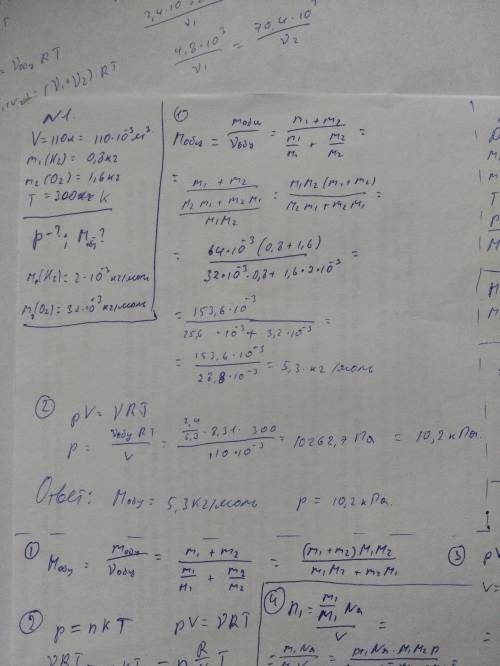 4,8·10³/ν₁ = 70,4·10³/ν₂
(ν₁+ν₂) RT
N1.
V=110л = 110·10⁻³м³
m₁(H₂) = 0,8кг
m₂(O₂) = 1,6кг
T = 300 K
p-?; M общ?
M₁(H₂) = 2·10⁻³ кг/моль
M₂(O₂) = 32·10⁻³ кг/моль
① Mобщ = mобщ/νобщ = (m₁+m₂)/(m₁/M₁ + m₂/M₂) =
= (m₁+m₂)/((M₂m₁+m₂M₁)/(M₁M₂)) = M₁M₂(m₁+m₂)/(M₂m₁+m₂M₁) =
= 64·10⁻³(0,8+1,6)/(32·10⁻³·0,8+1,6·2·10⁻³) =
= 153,6·10⁻³/(25,6·10⁻³+3,2·10⁻³) =
= 153,6·10⁻³/(28,8·10⁻³) = 5,3·кг/моль
② pV = νRT
p = νобщRT/V = (2,4/5,3·8,31·300)/(110·10⁻³) = 10262,7 Па = 10,2 кПа.
Ответ: Mобщ = 5,3кг/моль p = 10,2кПа.
① Mобщ = mобщ/νобщ = (m₁+m₂)/(m₁/M₁ + m₂/M₂) = (m₁+m₂)M₁M₂/(m₁M₂+m₂M₁)
③ pV
V=
② p = nkT pV = νRT
④ n₁ = (m₁/M₁ Na)/V =